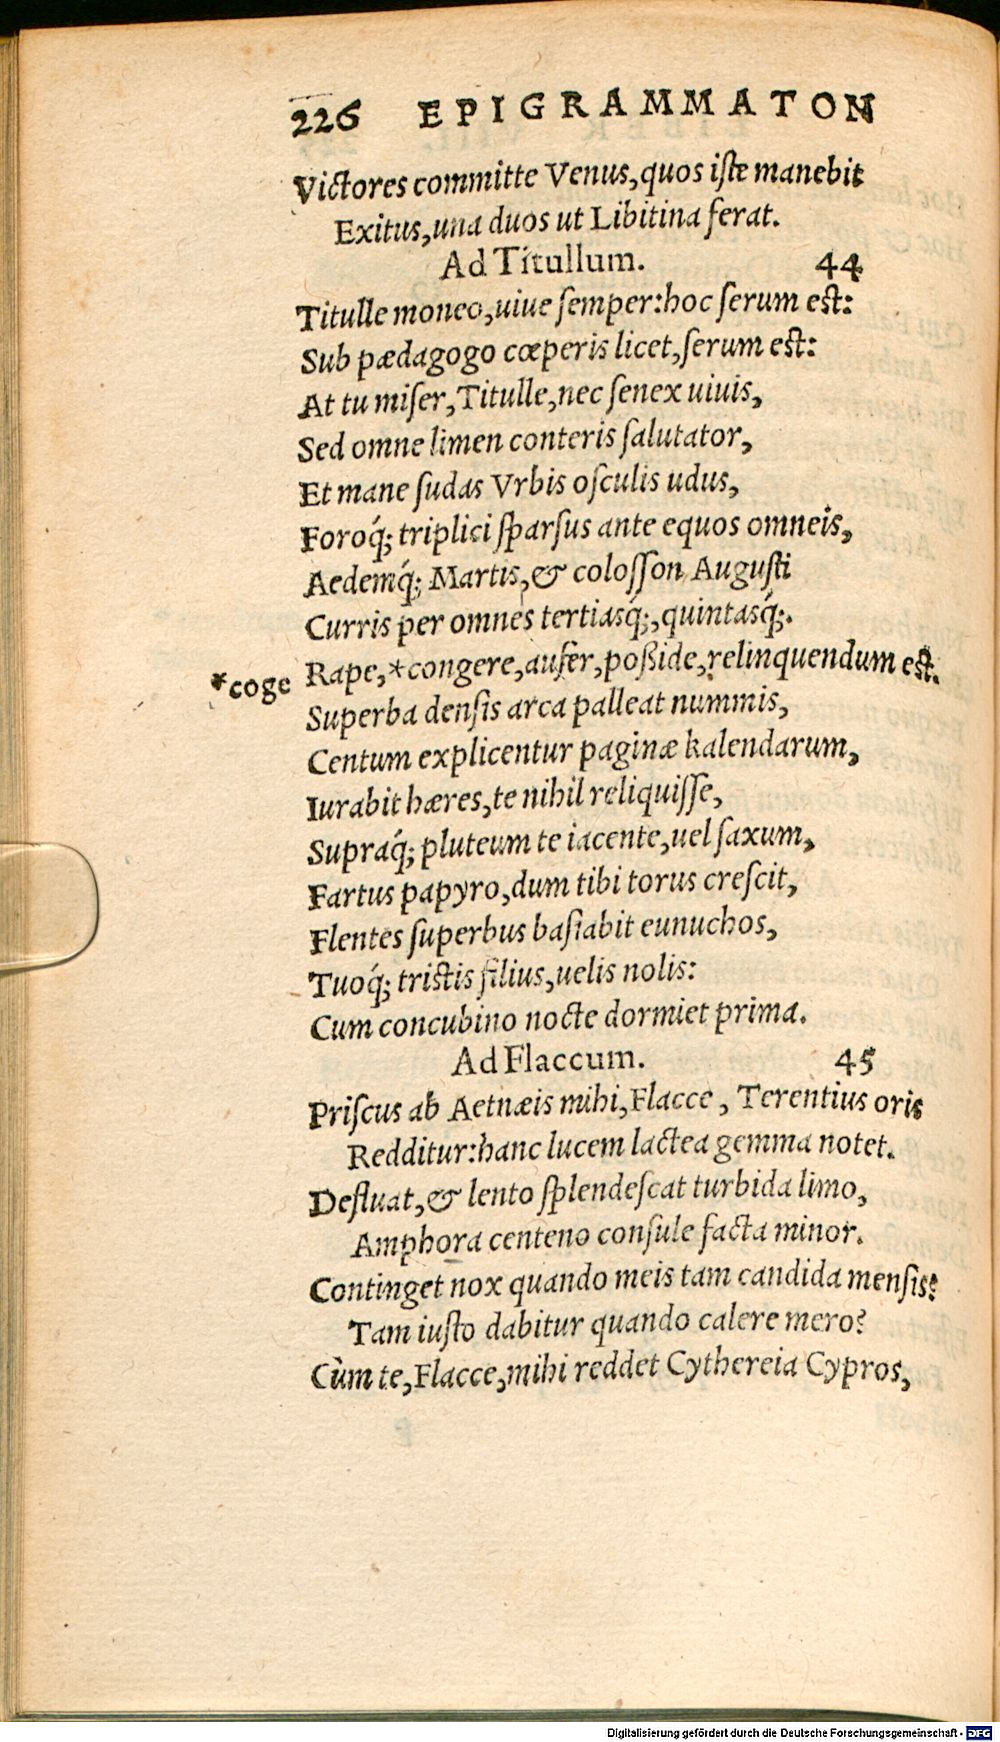 226 EPIGRAMMATON
Victores committe Venus, quos iste manebit
Exitus, una duos ut Libitina ferat.
Ad Titullum. 44
Titulle moneo, uiue semper: hoc serum est:
Sub pædagogo cœperis licet, serum est:
At tu miser, Titulle, nec senex uiuis,
Sed omne limen conteris salutator,
Et mane sudas Vrbis osculis udus,
Foroq́; triplici sparsus ante equos omneis,
Aedemq́; Martis, & colosson Augusti
Curris per omnes tertiasq́;, quintasq́;.
*coge Rape, *congere, aufer, poßide, relinquendum est.
Superba densis arca palleat nummis,
Centum explicentur paginæ kalendarum,
Iurabit hæres, te nihil reliquisse,
Supraq́; pluteum te iacente, uel saxum,
Fartus papyro, dum tibi torus crescit,
Flentes superbus basiabit eunuchos,
Tuoq́; tristis filius, uelis nolis:
Cum concubino nocte dormiet prima.
Ad Flaccum. 45
Priscus ab Aetnæis mihi, Flacce, Terentius oris
Redditur: hanc lucem lactea gemma notet.
Defluat, & lento splendescat turbida limo,
Amphora centeno consule facta minor.
Continget nox quando meis tam candida mensis?
Tam iusto dabitur quando calere mero?
Cùm te, Flacce, mihi reddet Cythereia Cypros,
Digitalisierung gefördert durch die Deutsche Forschungsgemeinschaft - DFG